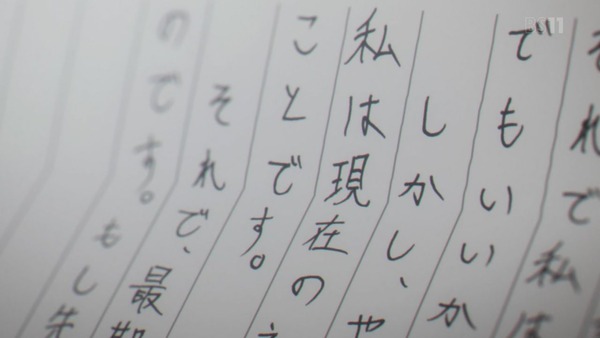 BS11
それで私は
でもいいか
しかし、や
私は現在の
ことです。
それで、最
のです。もし